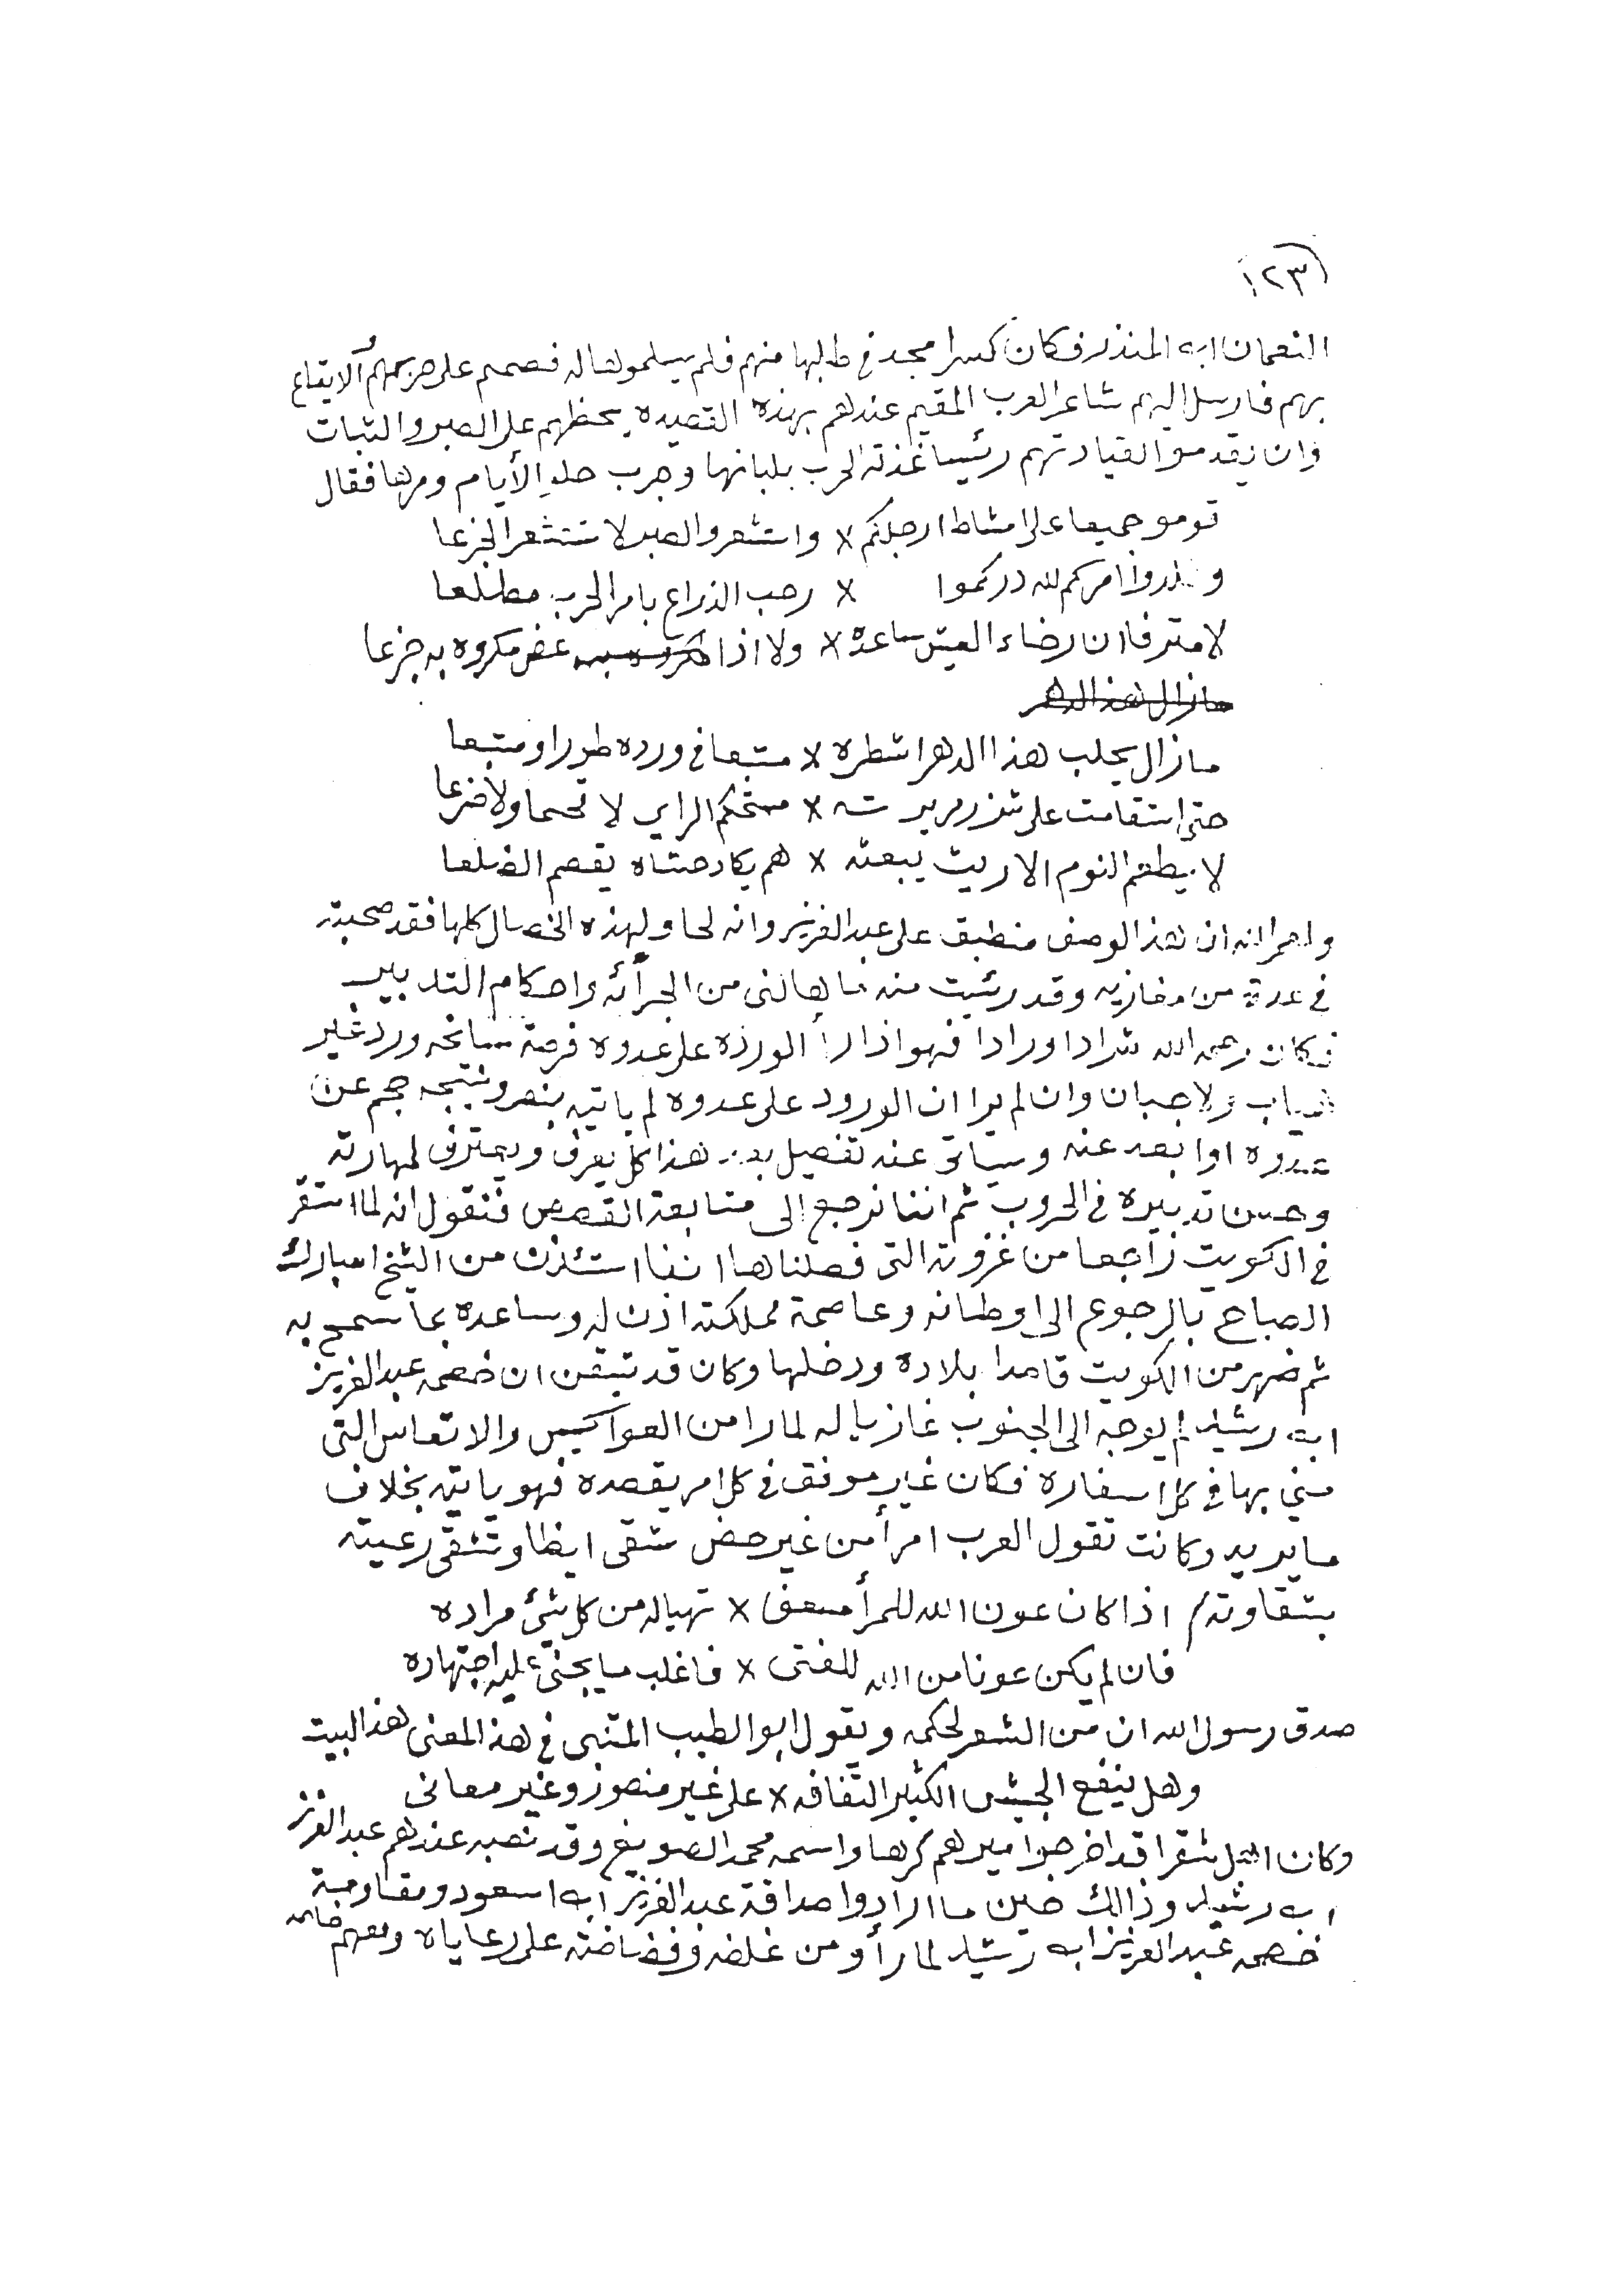 ١٢٣
النعمان ابن المنذر فكان كسرا مجد في طلبها منهم فلم يسلموها له فصمم على حزبهم ألايقاع
بهم فارسل اليهم شاعر العرب المقيم عندهم بهذه القصيده يحظهم على الصبر والثبات
وان يقدموا لقيادتهم رئيسا غذته الحرب بلبانها وجرب حلو الأيام ومرها فقال
قومو جميعا على امشاط ارجلكم × واستشعروا الصبر لا تستشعر الجزعا
وقلدوا امركم لله دركموا × رحب الذراع بامر الحرب مطلعا
لا مترفا ان رخاء العيش ساعده × ولا اذا عض مكروه به جزعا
مازال هذا الدهر
مازال يحلب هذا الدهر اشطره × متبعا في ورده طورا ومتبعا
حتى استقامت على شزر مريرته × مستحكم الراي لا قحما ولا ضرعا
لا يطعم النوم الا ريث يبعثه × هم يكاد حشاه يقصم الضلعا
ولعمر الله ان هذا الوصف منطبق على عبدالعزيز وانه لحاو لهذه الخصال كلها فقد صحبته
في عدة من مغازيه وقد رئيت منه ما هالني من الجرأئه واحكام التدبير
فكان رحمه الله شرادا ورادا فهو اذا رأ الورده على عدوه فرصة سانحه ورد غير
هياب ولا جبان وان لم يرا ان الورود على عدوه لم ياتيه بنصر ونتيجه حجم عن
عدوه اوابعد عنه وسياتي عنه تفصيل هذا كل يعرف ويعترف لمهارته
وحسن تدبيره في الحروب ثم اننا نرجع الى متابعة القصص فنقول انه لما استقر
في الكويت راجعا من غزوته التي فصلناها انفا استئذن من الشيخ امبارك
الصباح بالرجوع الى اوطانه وعاصمة مملكته اذن له وساعده بما سمح به
ثم ضهر من الكويت قاصدا بلاده ودخلها وكان قد تيقن ان خصمه عبدالعزيز
ابن رشيد لم يوجه الى الجنوب غازيا له لما را من العواكيس والاتعاس التي
مني بها في كل اسفاره فكان غير موفق في كل امر يقصده فهو ياتيه بخلاف
ما يريد وكانت تقول العرب امرأ من غير حض شقى ايظا وتشقى رعيته
بشقاوته / اذا كان عون الله للمرأ مسعف × تهياله من كل شيئ مراده
فان لم يكن عونا من الله للفتى × فاغلب ما يجني عليه اجتهاده
صدق رسول الله ان من الشعر لحكمه ويقول ابو الطيب المتنبي في هذا المعنى هذا البيت
وهل ينفع الجيش الكثير التفافه × على غير منصور وغير معانى
وكان اهل شقرا قد اخرجوا اميرهم كرها واسمه محمد الصويغ وقد نصبه عندهم عبدالعزيز
ابن رشيد وذالك حين ما ارادوا صداقة عبدالعزيز ابن اسعود ومقاومة
خصمه عبدالعزيز ابن رشيد لما رأو من غلضه وفضاضته على رعاياه ومعهم